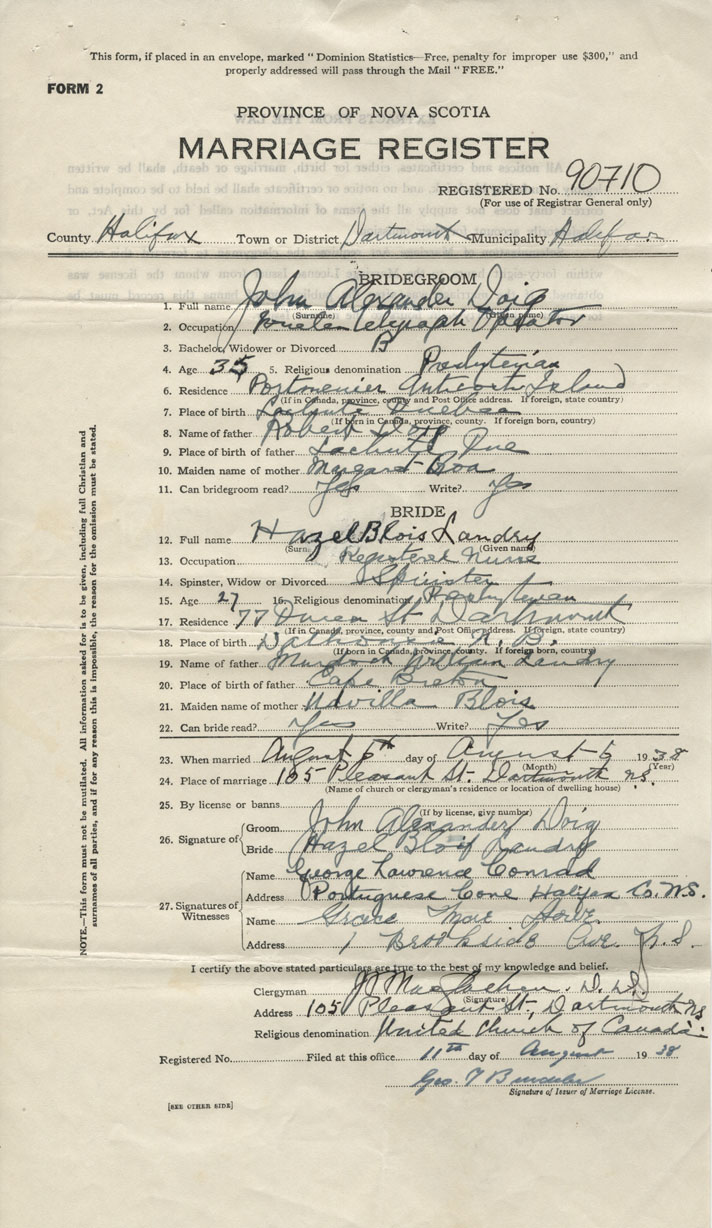 This form, if placed in an envelope, marked "Dominion Statistics—Free, penalty for improper use $300," and
properly addressed will pass through the Mail "FREE."
FORM 2
PROVINCE OF NOVA SCOTIA
MARRIAGE REGISTER
REGISTERED No. 90710
(For use of Registrar General only)
County Halifax Town or District Dartmouth Municipality Halifax
BRIDEGROOM
1. Full name John Alexander Doig
(Surname) (Given name)
2. Occupation Wireless Telegraph Operator
3. Bachelor, Widower or Divorced B
4. Age 35 5. Religious denomination Presbyterian
6. Residence Portmenier Anticosti Island
(If in Canada, province, county and Post Office address. If foreign, state country)
7. Place of birth Lachute Quebec
(If born in Canada, province, county. If foreign born, country)
8. Name of father Robert Doig
9. Place of father Lachute Que
10. Maiden name of mother Margaret Boa
11. Can bridegroom read? Yes Write? Yes
BRIDE
12. Full name Hazel Blois Landry
(Surname) (Given name)
13. Occupation Registered Nurse
14. Spinster, Widow or Divorced Spinster
15. Age 27 16. Religious denomination Presbyterian
17. Residence 77 Queen St Dartmouth
(If in Canada, province, county and Post Office address. If foreign, state country)
18. Place of birth Dalhousie N. B.
(If born in Canada, province, county. If foreign born, country)
19. Name of father Murdock William Landry
20. Place of birth of father Cape Breton
21. Maiden name of mother Blois
22. Can bride read? Yes Write? Yes
23. When married August 6th day of August 6 1938
(Month) (Year)
24. Place of marriage 105 Pleasant St. Dartmouth N.S.
(Name of church or clergyman's residence or location of dwelling house)
25. By license or banns
(If by license, give number)
26. Signature of Groom John Alexander Doig
Bride Hazel Blois Landry
27. Signatures of Witnesses Name George Lawrence Conrad
Address Portuguese Cove Halifax Co. N.S.
Name Grace Mae
Address 1 Brookside Ave. N.S.
I certify the above stated particulars are true to the best of my knowledge and belief.
Clergyman D.D.
(Signature)
Address 105 Pleasant St., Dartmouth NS
Religious denomination United Church of Canada.
Registered No. Filed at this office 11th day of August 1938
Geo. T
Signature of Issuer of Marriage License.
[SEE OTHER SIDE]
NOTE.—This form must not be mutilated. All information asked for is to be given, including full Christian and
surnames of all parties, and if for any reason this is impossible, the reason for the omission must be stated.